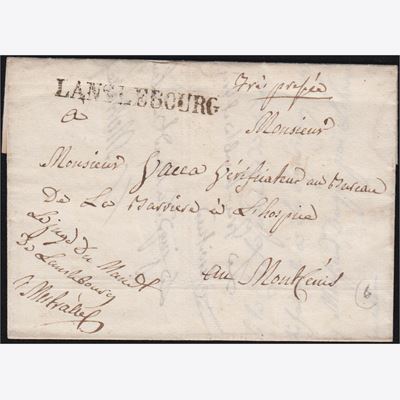 LANSLEBOURG
très pressée
a
Monsieur
Monsieur Vacca vérificateur au Bureau
De La Barriere à Lhospice
au Montcénis
Le juge du
De Lanslebourg
6